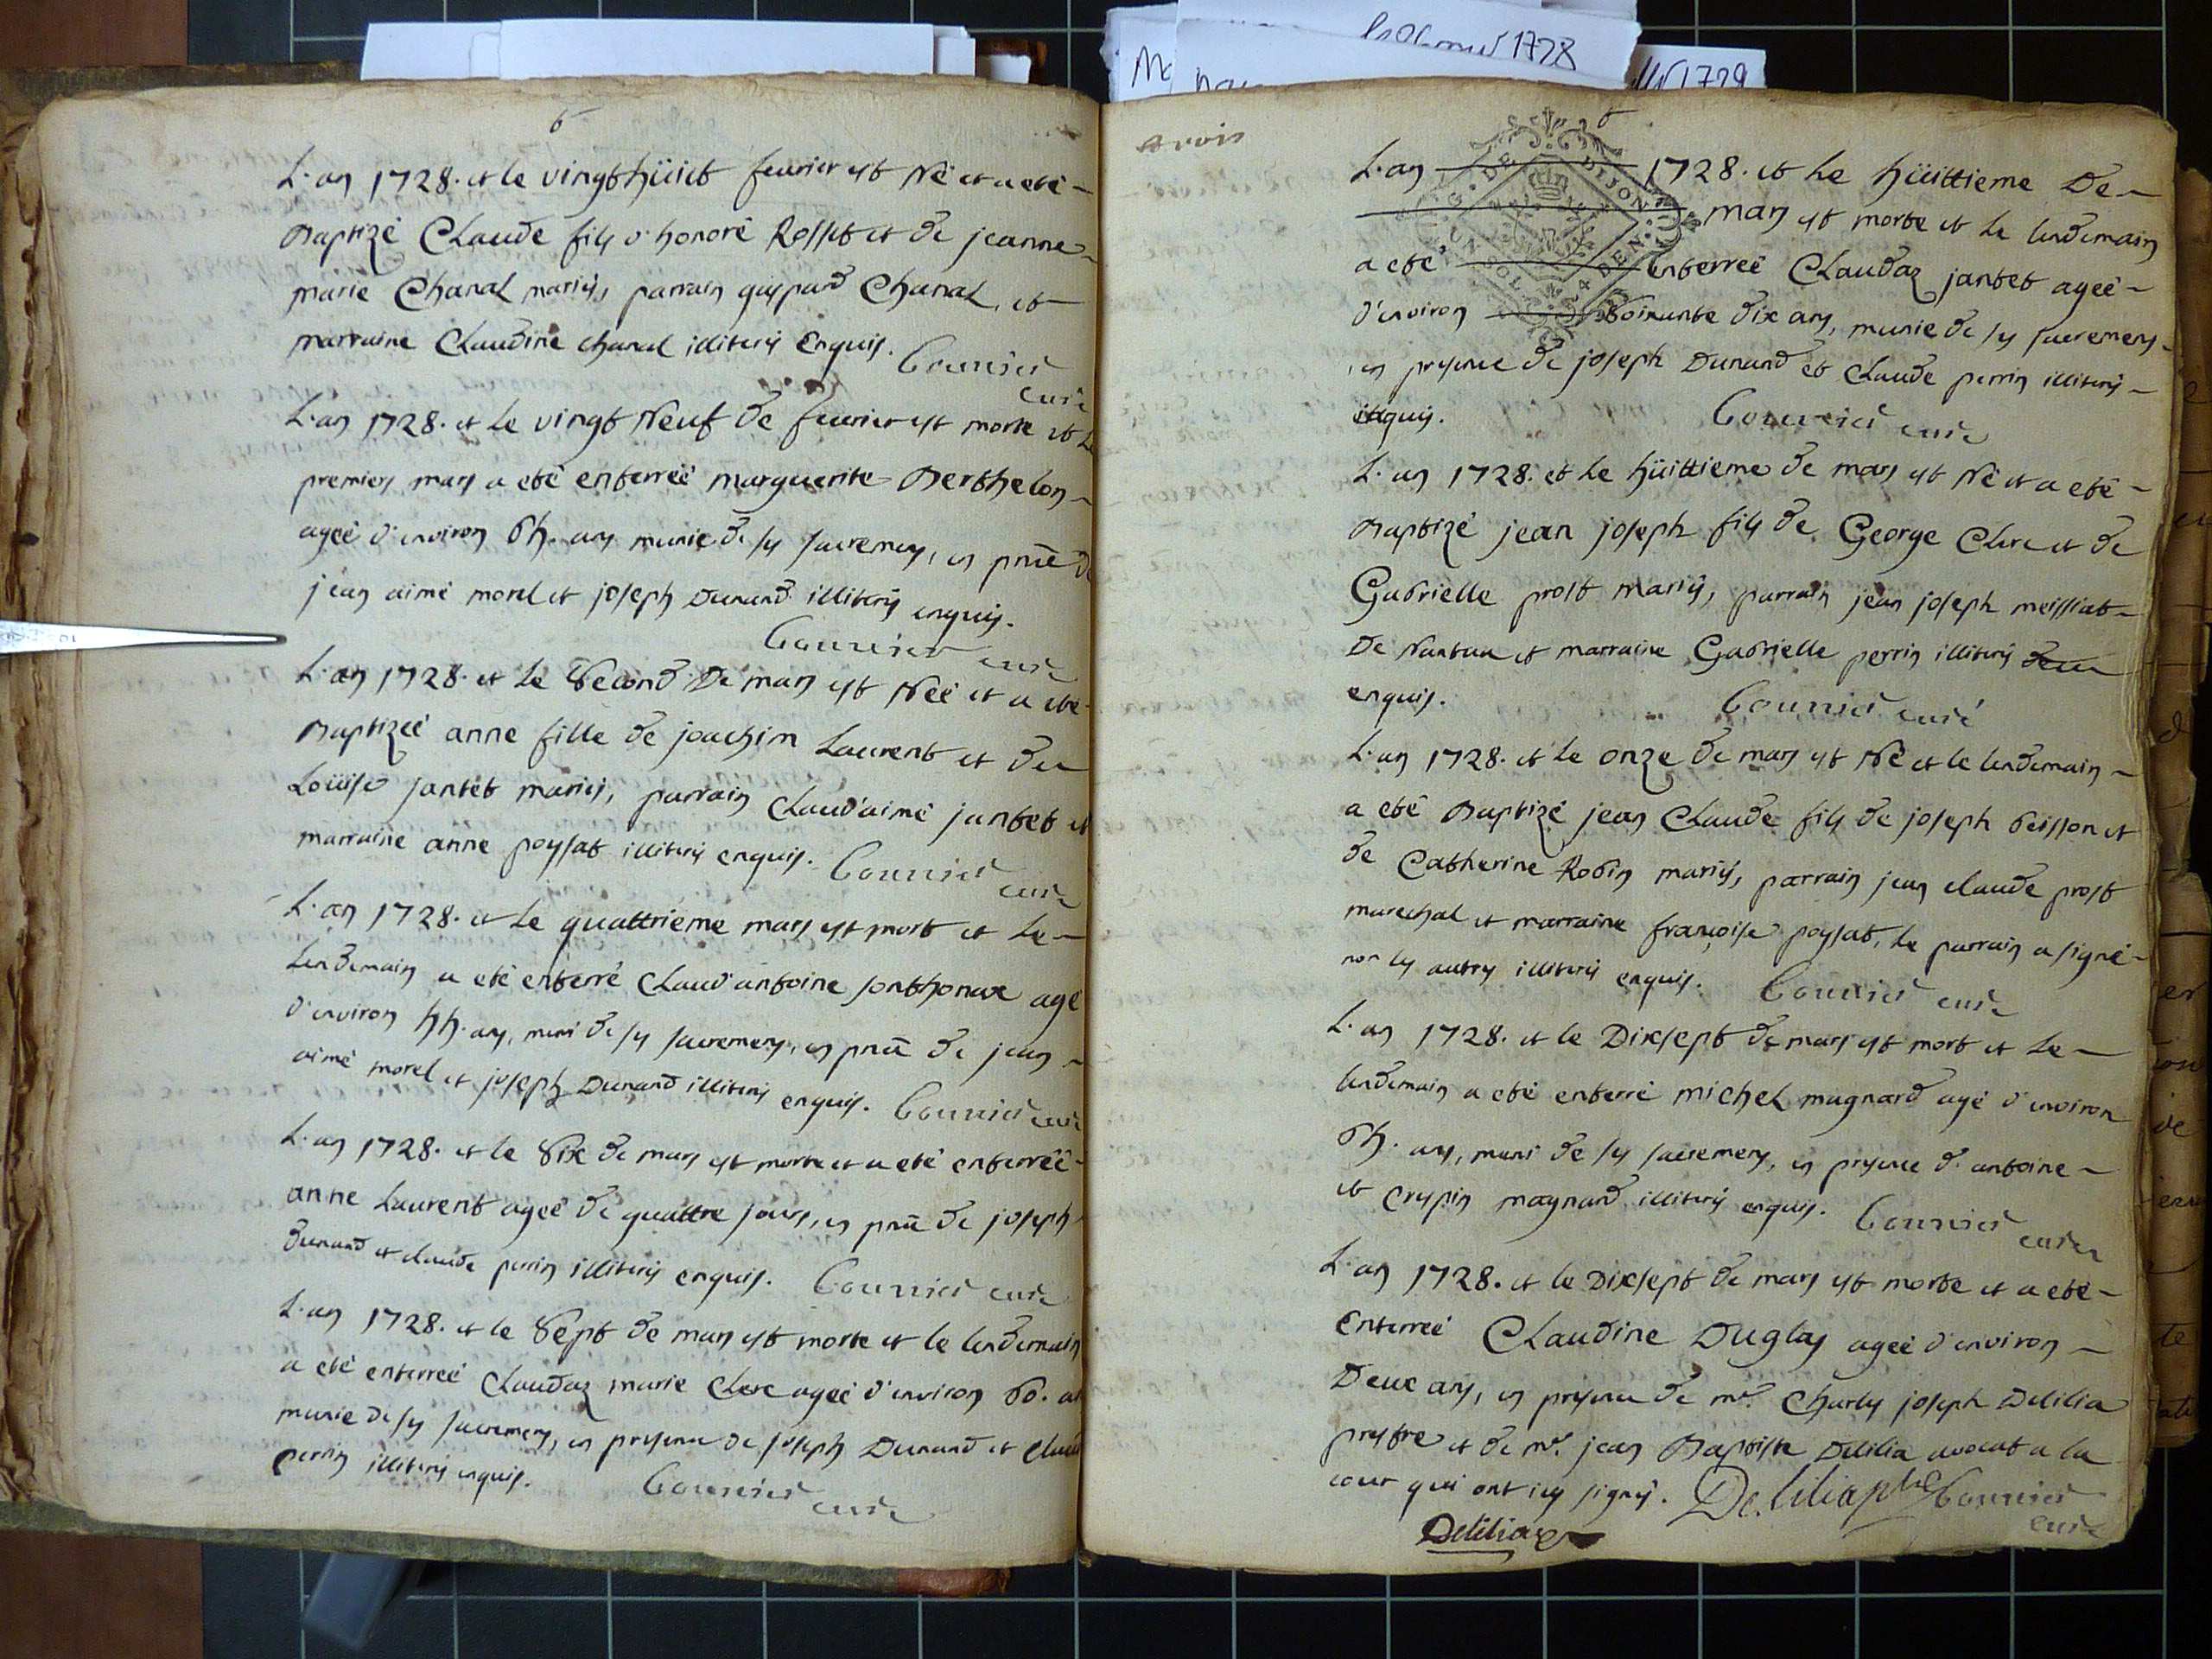 6
L'an 1728. et le vingthüict feurier est Né et a eté
Baptizé Claude fils d'honoré Rosset et de jeanne
marie Chanal mariés, parrain gaspard Chanal, et
marraine Claudine chanal illiterés Enquis. Courrier
curé
L'an 1728. et Le vingt Neuf de feurier est morte et Le
premiers mars a eté enterreé marguerite Berthelon
ageé d'environ ans munie de ses sacremens, en pnce de
jean aimé morel et joseph Dunand illiterés enquis.
Courrier curé
L'an 1728. et Le Second De mars est Neé et a eté
Baptizeé anne fille de joachim Laurent et de
Loüise jantet mariés, parrain Claud'aimé jantet et
marraine anne poysat illiterés enquis. Courrier
curé
L'an 1728. et Le quattrieme mars est mort et Le
Lendemain a eté enterré Claud'antoine sonthonax agé
d'environ ans, muni de ses sacremens, en pnce de jean
aimé morel et joseph Dunand illiterés enquis. Courrier curé
L'an 1728. et le Six de mars est morte et a eté enterreé
anne Laurent ageé de quattre jours, en pnce de joseph
Dunand et claude perrin illiterés enquis. Courrier curé
L'an 1728. et le Sept de mars est morte et le lendemain
a eté enterreé Claudaz marie Clerc ageé d'environ 60. an
munie de ses sacremens, en presence de joseph Dunand et claud
perrin illiterés enquis. Courrier curé
1728
1729
6
L'an 1728. et Le hüittieme De
mars est morte et Le lendemain
a eté enterreé Claudaz jantet ageé
d'environ Soixante dix ans, munie de ses sacremens
en presence de joseph Dunand et Claude perrin illiterés
enquis. Courrier curé
L'an 1728. et Le hüittieme de mars est Né et a eté
Baptizé jean joseph fils de George Clerc et de
Gabrielle prost mariés, parrain jean joseph meissiat
De Nantua et marraine Gabrielle perrin illiterés
enquis. Courrier curé
L'an 1728. et Le onze De mars est Né et le lendemain
a eté Baptizé jean Claude fils de joseph et
de Catherine Robin mariés, parrain jean claude prost
marechal et marraine françoise poysat, Le parrain a signé
non les autres illiterés enquis. Courrier curé
L'an 1728. et le Dixsept de mars est mort et Le
lendemain a eté enterré michel magnard agé d'environ
ans, muni de ses sacremens, en presence d'antoine
et Crespin magnard illiterés enquis. Courrier
curé
L'an 1728. et le Dixsept de mars est morte et a eté
Enterreé Claudine Duglas ageé d'environ
Deux ans, en presence de mre. Charles joseph Delilia
prestre et de mre. jean Baptiste Delilia avocat a la
cour qui ont icy signés. De. lilia ptre Courrier
curé
Delilia